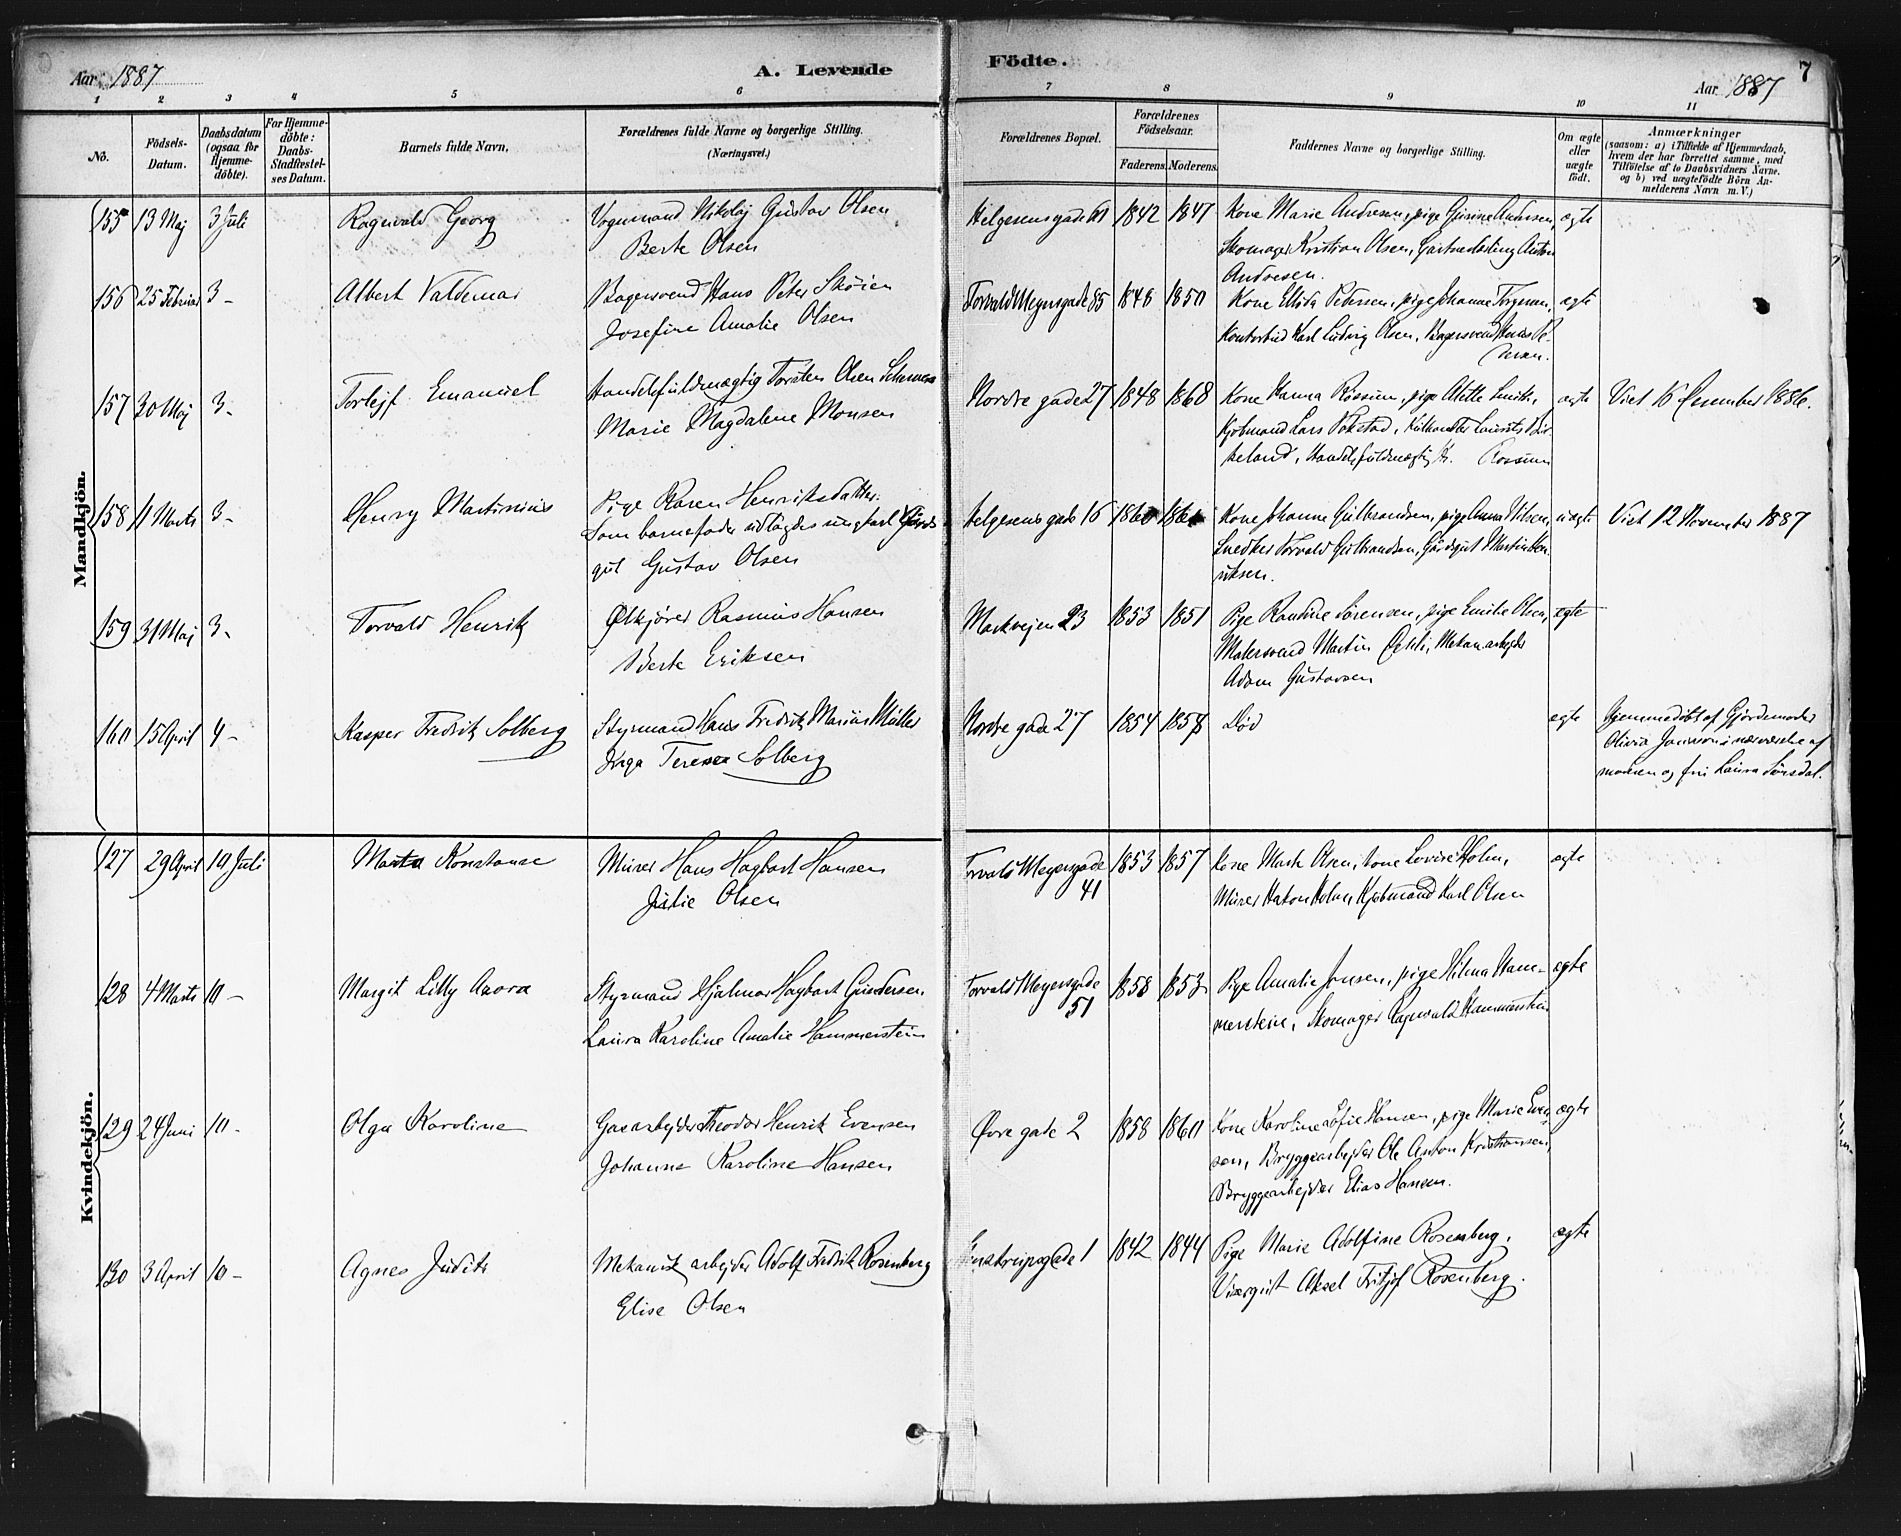 Aar 1887
A. Levende
Födte.
7
Aar 1887
1 2 3 4 5 6 7 8 9 10 11
No.
Födsels-
Datum.
Daabsdatum
(ogsaa for
Hjemme-
döbte).
For Hjemme-
döbte:
Daabs-
Stadfæstel-
ses Datum.
Barnets fulde Navn.
Forældrenes fulde Navne og borgerlige Stilling.
(Næringsvei.)
Forældrenes Bopæl.
Forældrenes
Födselsaar.
Faderens. Moderens.
Faddernes Navne og borgerlige Stilling.
Om ægte
eller
uægte
födt.
Anmærkninger
(saasom: a) i Tilfælde af Hjemmedaab,
hvem der har forrettet samme, med
Tilföielse af to Daabsvidners Navne.
og b) ved uægtefödte Börn An-
melderens Navn m. V.)
Mandkjön.
155 13 Maj 3 Juli Ragnvald Georg Vognmand Nikolaj Gustav Olsen Helgesensgade 61 1842 1847 Kone Marie Andresen, pige Gusine Andresen, ægte
Berte Olsen Skomager Kristian Olsen, Anton
Andresen.
156 25 Februar 3 - Albert Valdemar Bagersvend Hans Peter Skøien Torvald Meyersgade 85 1848 1850 Kone Elida Petersen, pige Johanne ægte
Josefine Amalie Olsen Kontorbud Karl Ludvig Olsen, Bagersvend
157 30 Maj 3 - Torlejf Emanuel Handelsfuldmægtig Torsten Olsen Nordregade 27 1848 1868 Kone Hanna Rossum, pige Alette Smith, ægte Viet 16 Desember 1886.
Marie Magdalene Monsen Kjøbmand Lars
Handelsfuldmægtig Kr. Rossum
158 11 Marts 3 - Henry Martinius Pige Karen Henriksdatter. Helgesensgade 16 Kone Johanne Gulbrandsen, pige Anna Nilsen, uægte Viet 12 November 1887
Som barnefader udlagdes ungkarl Gårds-
gut Gustav Olsen Snedker Torvald Gulbrandsen, Gårdsgut Martin Hen-
riksen.
159 31 Maj 3 - Torvald Henrik Ølkjører Rasmus Hansen Markvejen 23 1853 1851 Pige Sørensen, pige Emilie Olsen, ægte
Berte Eriksen Malersvend Martin Mekan. arbejder
Adam Gustavsen
160 15 April 4 - Kasper Fredrik Solberg Styrmand Hans Fredrik Marius Müller Nordregade 27 1854 1858 Død ægte Hjemmedøbt af Gjordemoder
Inga Terese Solberg Olivia i nærværelse af
moderen og fru Laura
Kvindekjön.
127 29 April 10 Juli Marta Konstanse Murer Hans Hagbart Hansen Torvald Meyersgade 1853 1857 Kone Marte Olsen, kone Lovise Holm, ægte
Julie Olsen 41 Murer Hakon Holm, Kjøbmand Karl Olsen
128 4 Marts 10 - Margit Lilly Aurora Styrmand Hjalmar Hagbart Gundersen Torvald Meyersgade 1858 1853 Pige Amalie Jensen, pige Hilma Ham- ægte
Laura Karoline Amalie Hammerstein 51 merstein, Skomager Ragnvald Hammerstein
129 24 Juni 10 - Olga Karoline Gasarbejder Theodor Henrik Evensen Øvregade 2 1858 1860 Kone Karoline Sofie Hansen, pige Marie Even- ægte
Johanne Karoline Hansen sen, Bryggearbejder Ole Anton Kristiansen,
Bryggearbejder Elias Hansen.
130 3 April 10 - Agnes Judith Mekanisk arbejder Adolf Fredrik Rosenberg 1 1842 1844 Pige Marie Adolfine Rosenberg, ægte
Elise Olsen Visergut Aksel Fritjof Rosenberg.